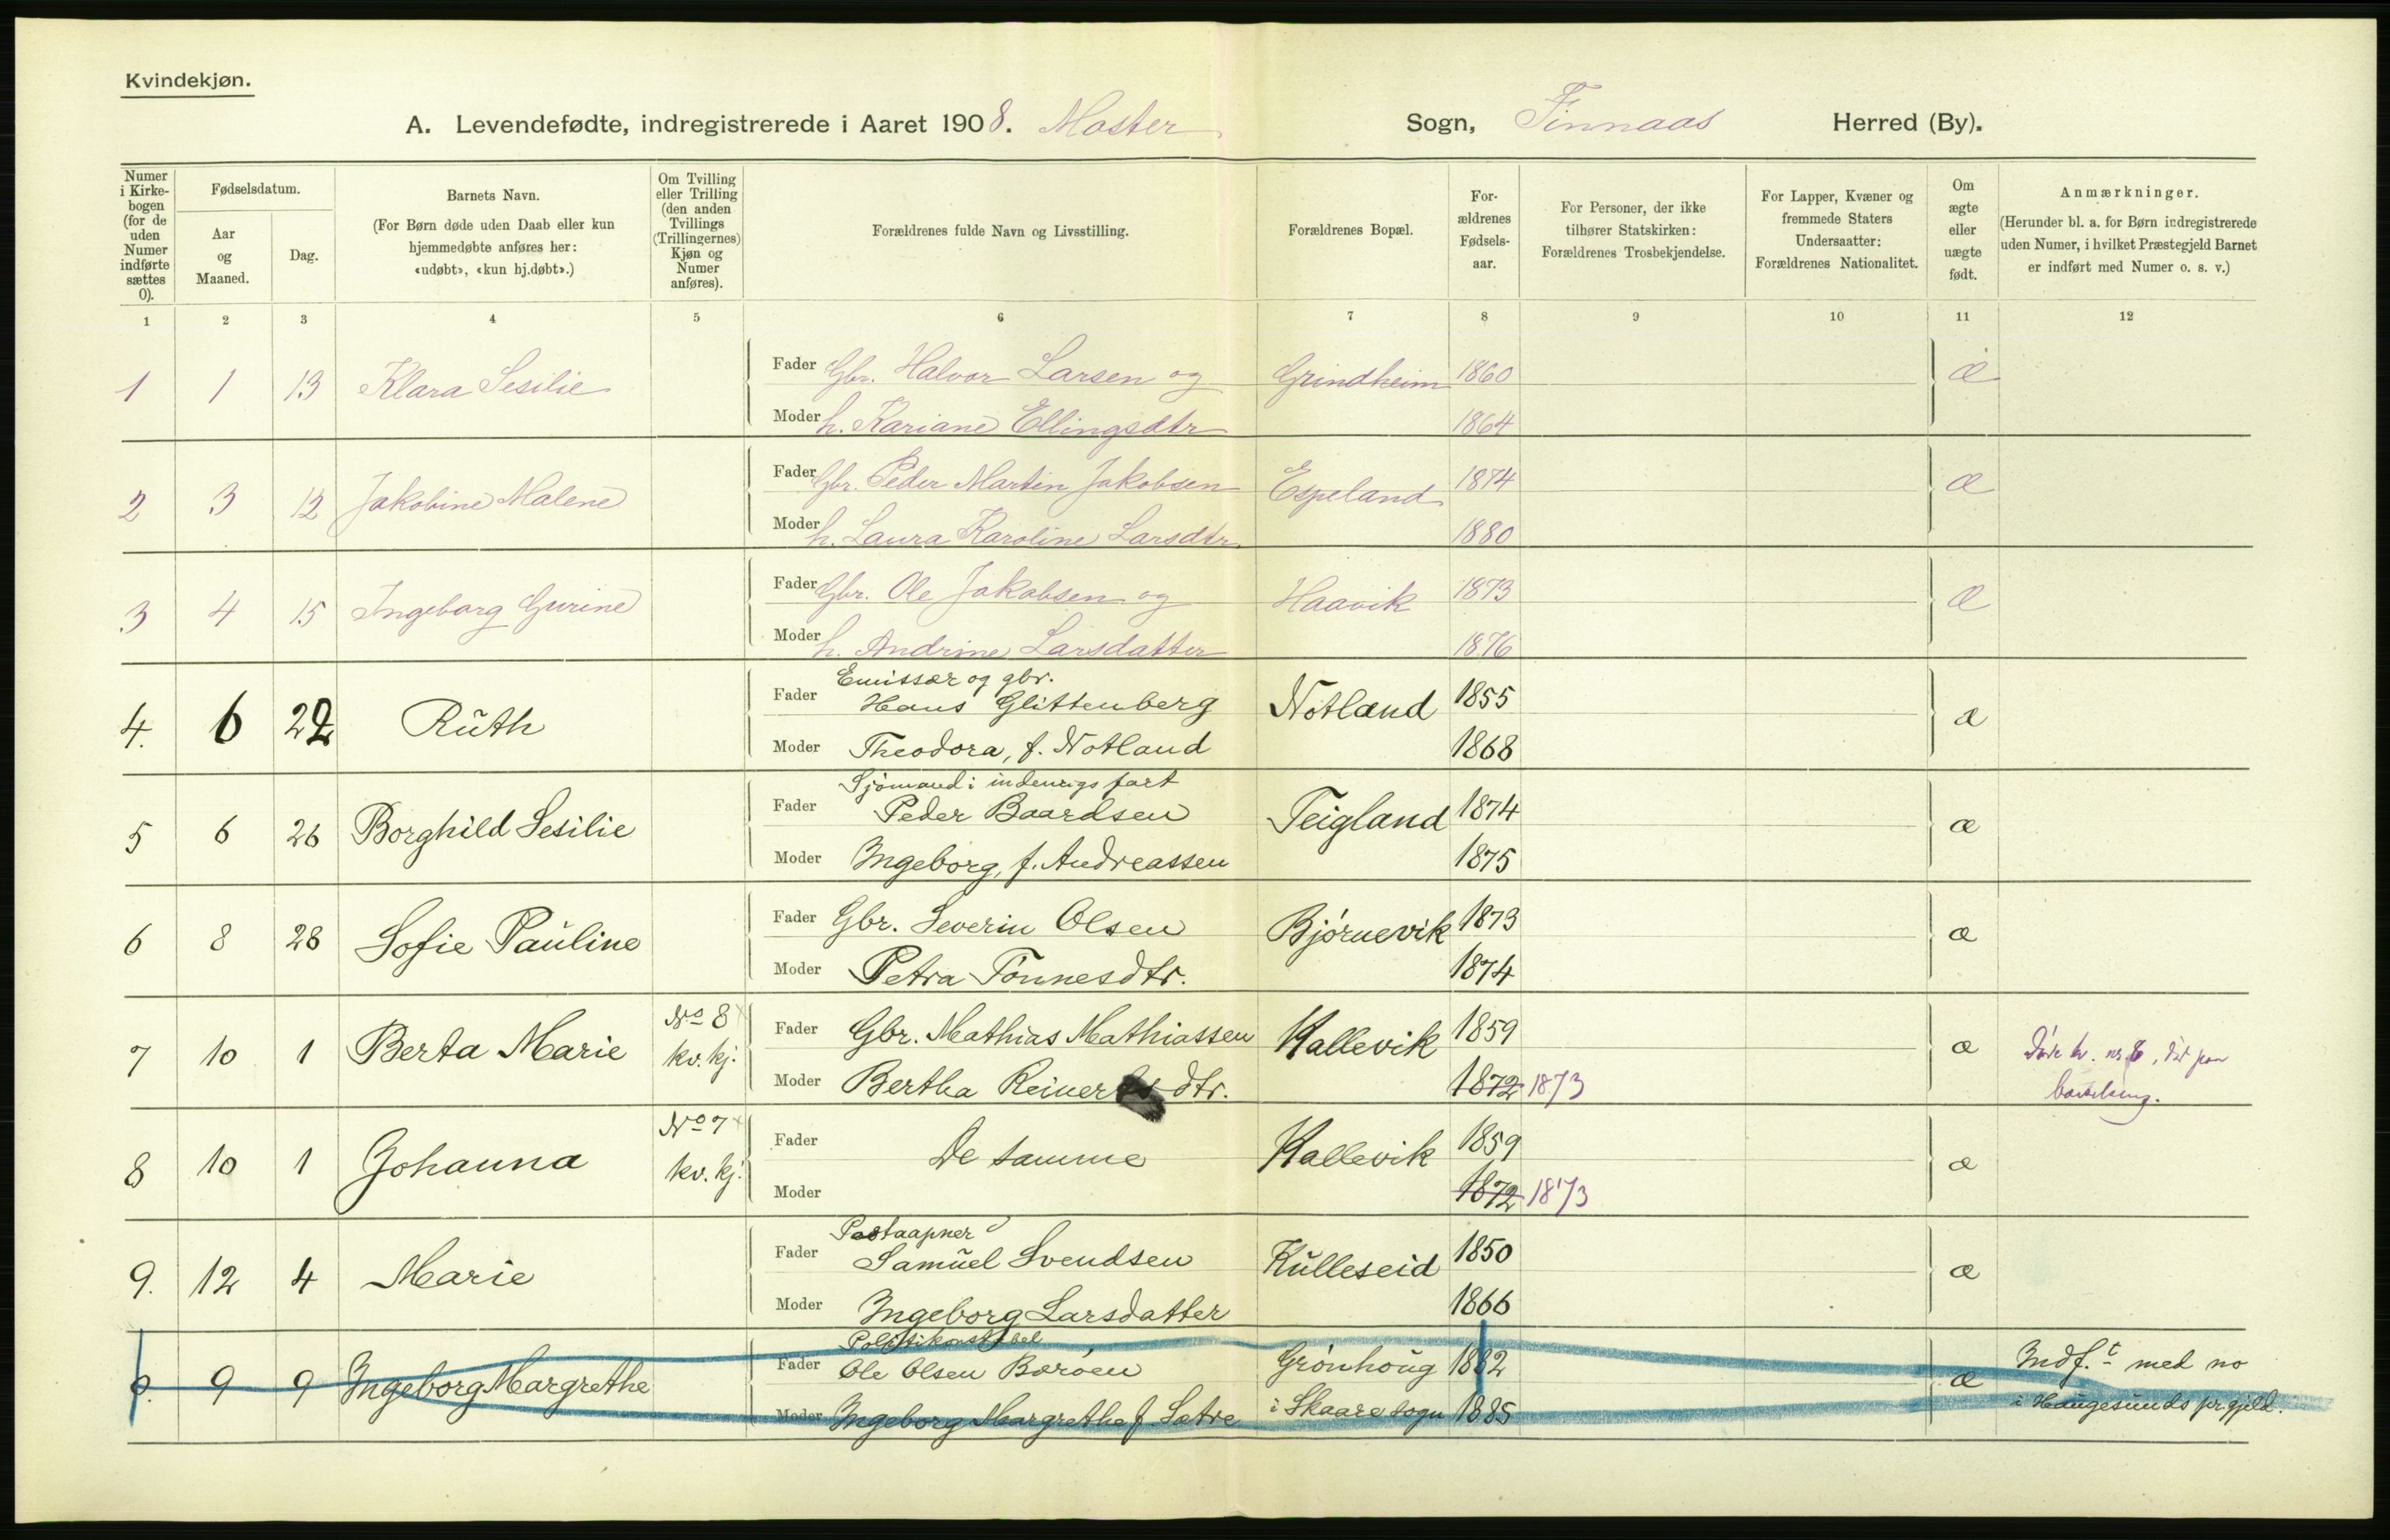 Kvindekjøn.
A. Levendefødte, indregistrerede i Aaret 1908. Moster Sogn, Finnaas Herred (By).
Numer i Kirkebogen (for de uden Numer indførte sættes 0).
Fødselsdatum.
Aar og Maaned.
Dag.
Barnets Navn.
(For Børn døde uden Daab eller kun hjemmedøbte anføres her: «udøbt», «kun hj.døbt».)
Om Tvilling eller Trilling (den anden Tvillings (Trillingernes) Kjøn og Numer anføres).
Forældrenes fulde Navn og Livsstilling.
Forældrenes Bopæl.
Forældrenes Fødselsaar.
For Personer, der ikke tilhører Statskirken: Forældrenes Trosbekjendelse.
For Lapper, Kvæner og fremmede Staters Undersaatter: Forældrenes Nationalitet.
Om ægte eller uægte født.
Anmærkninger.
(Herunder bl. a. for Børn indregistrerede uden Numer, i hvilket Præstegjeld Barnet er indført med Numer o. s. v.)
1 2 3 4 5 6 7 8 9 10 11 12
1 1 13 Klara Sesilie Fader Gbr. Halvor Larsen og Grindheim 1860 æ
Moder h. Kariane Ellingsdtr 1864
2 3 12 Jakobine Malene Fader Gbr. Peder Martin Jakobsen Espeland 1874 æ
Moder h. Laura Karoline Larsdtr. 1880
3 4 15 Ingeborg Gurine Fader Gbr. Ole Jakobsen og Haavik 1873 æ
Moder h. Andrine Larsdatter 1876
Emissær og gbr.
4. 6 22 Ruth Fader Hans Glittenberg Notland 1855 æ
Moder Theodora, f. Notland 1868
Sjömand i indenrigs fart
5 6 26 Borghild Sesilie Fader Peder Baardsen Teigland 1874 æ
Moder Ingeborg, f. Andreassen 1875
6 8 28 Sofie Pauline Fader Gbr. Severin Olsen Bjørnevik 1873 æ
Moder Petra Tönnesdtr. 1874
7 10 1 Berta Marie No 8 kv. kj. Fader Gbr. Mathias Mathiassen Kallevik 1859 æ
Moder Bertha Reinertsdtr. 1872 1873
8 10 1 Johanna No 7 kv. kj. Fader De samme Kallevik 1859 æ
Moder 1872 1873
Postaapner
9. 12 4 Marie Fader Samuel Svendsen Kulleseid 1850 æ
Moder Ingeborg Larsdatter 1866
Politikonstabel
0. 9 9 Ingeborg Margrethe Fader Ole Olsen Børøen Grønhoug 1882 æ Indf.t med no
Moder Ingeborg Margrethe f Sætre i Skaare sogn 1885 i Haugesunds pr.gjeld.